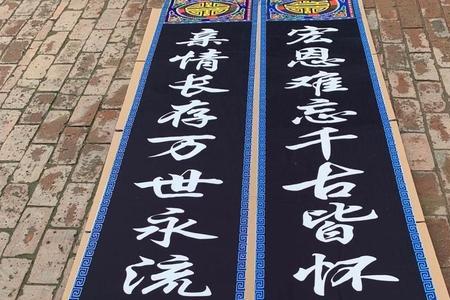 宏恩难忘千古皆怀
亲情长存万世永流